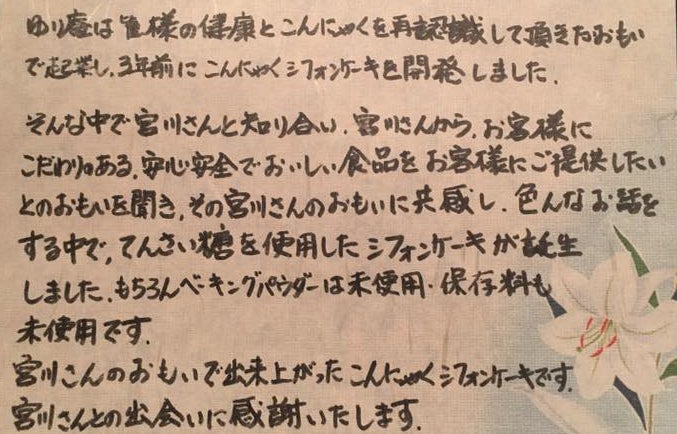 ゆり庵は皆様の健康とこんにゃくを再認識して頂きたおもい
で起業し、3年前にこんにゃくシフォンケーキを開発しました。
そんな中で宮川さんと知り合い、宮川さんから、お客様に
こだわりのある、安心安全でおいしい食品をお客様にご提供したい
とのおもいを聞き、その宮川さんのおもいに共感し、色んなお話を
する中で、てんさい糖を使用したシフォンケーキが誕生
しました。もちろんベーキングパウダーは未使用・保存料も
未使用です。
宮川さんのおもいで出来上がったこんにゃくシフォンケーキです。
宮川さんとの出会いに感謝いたします。